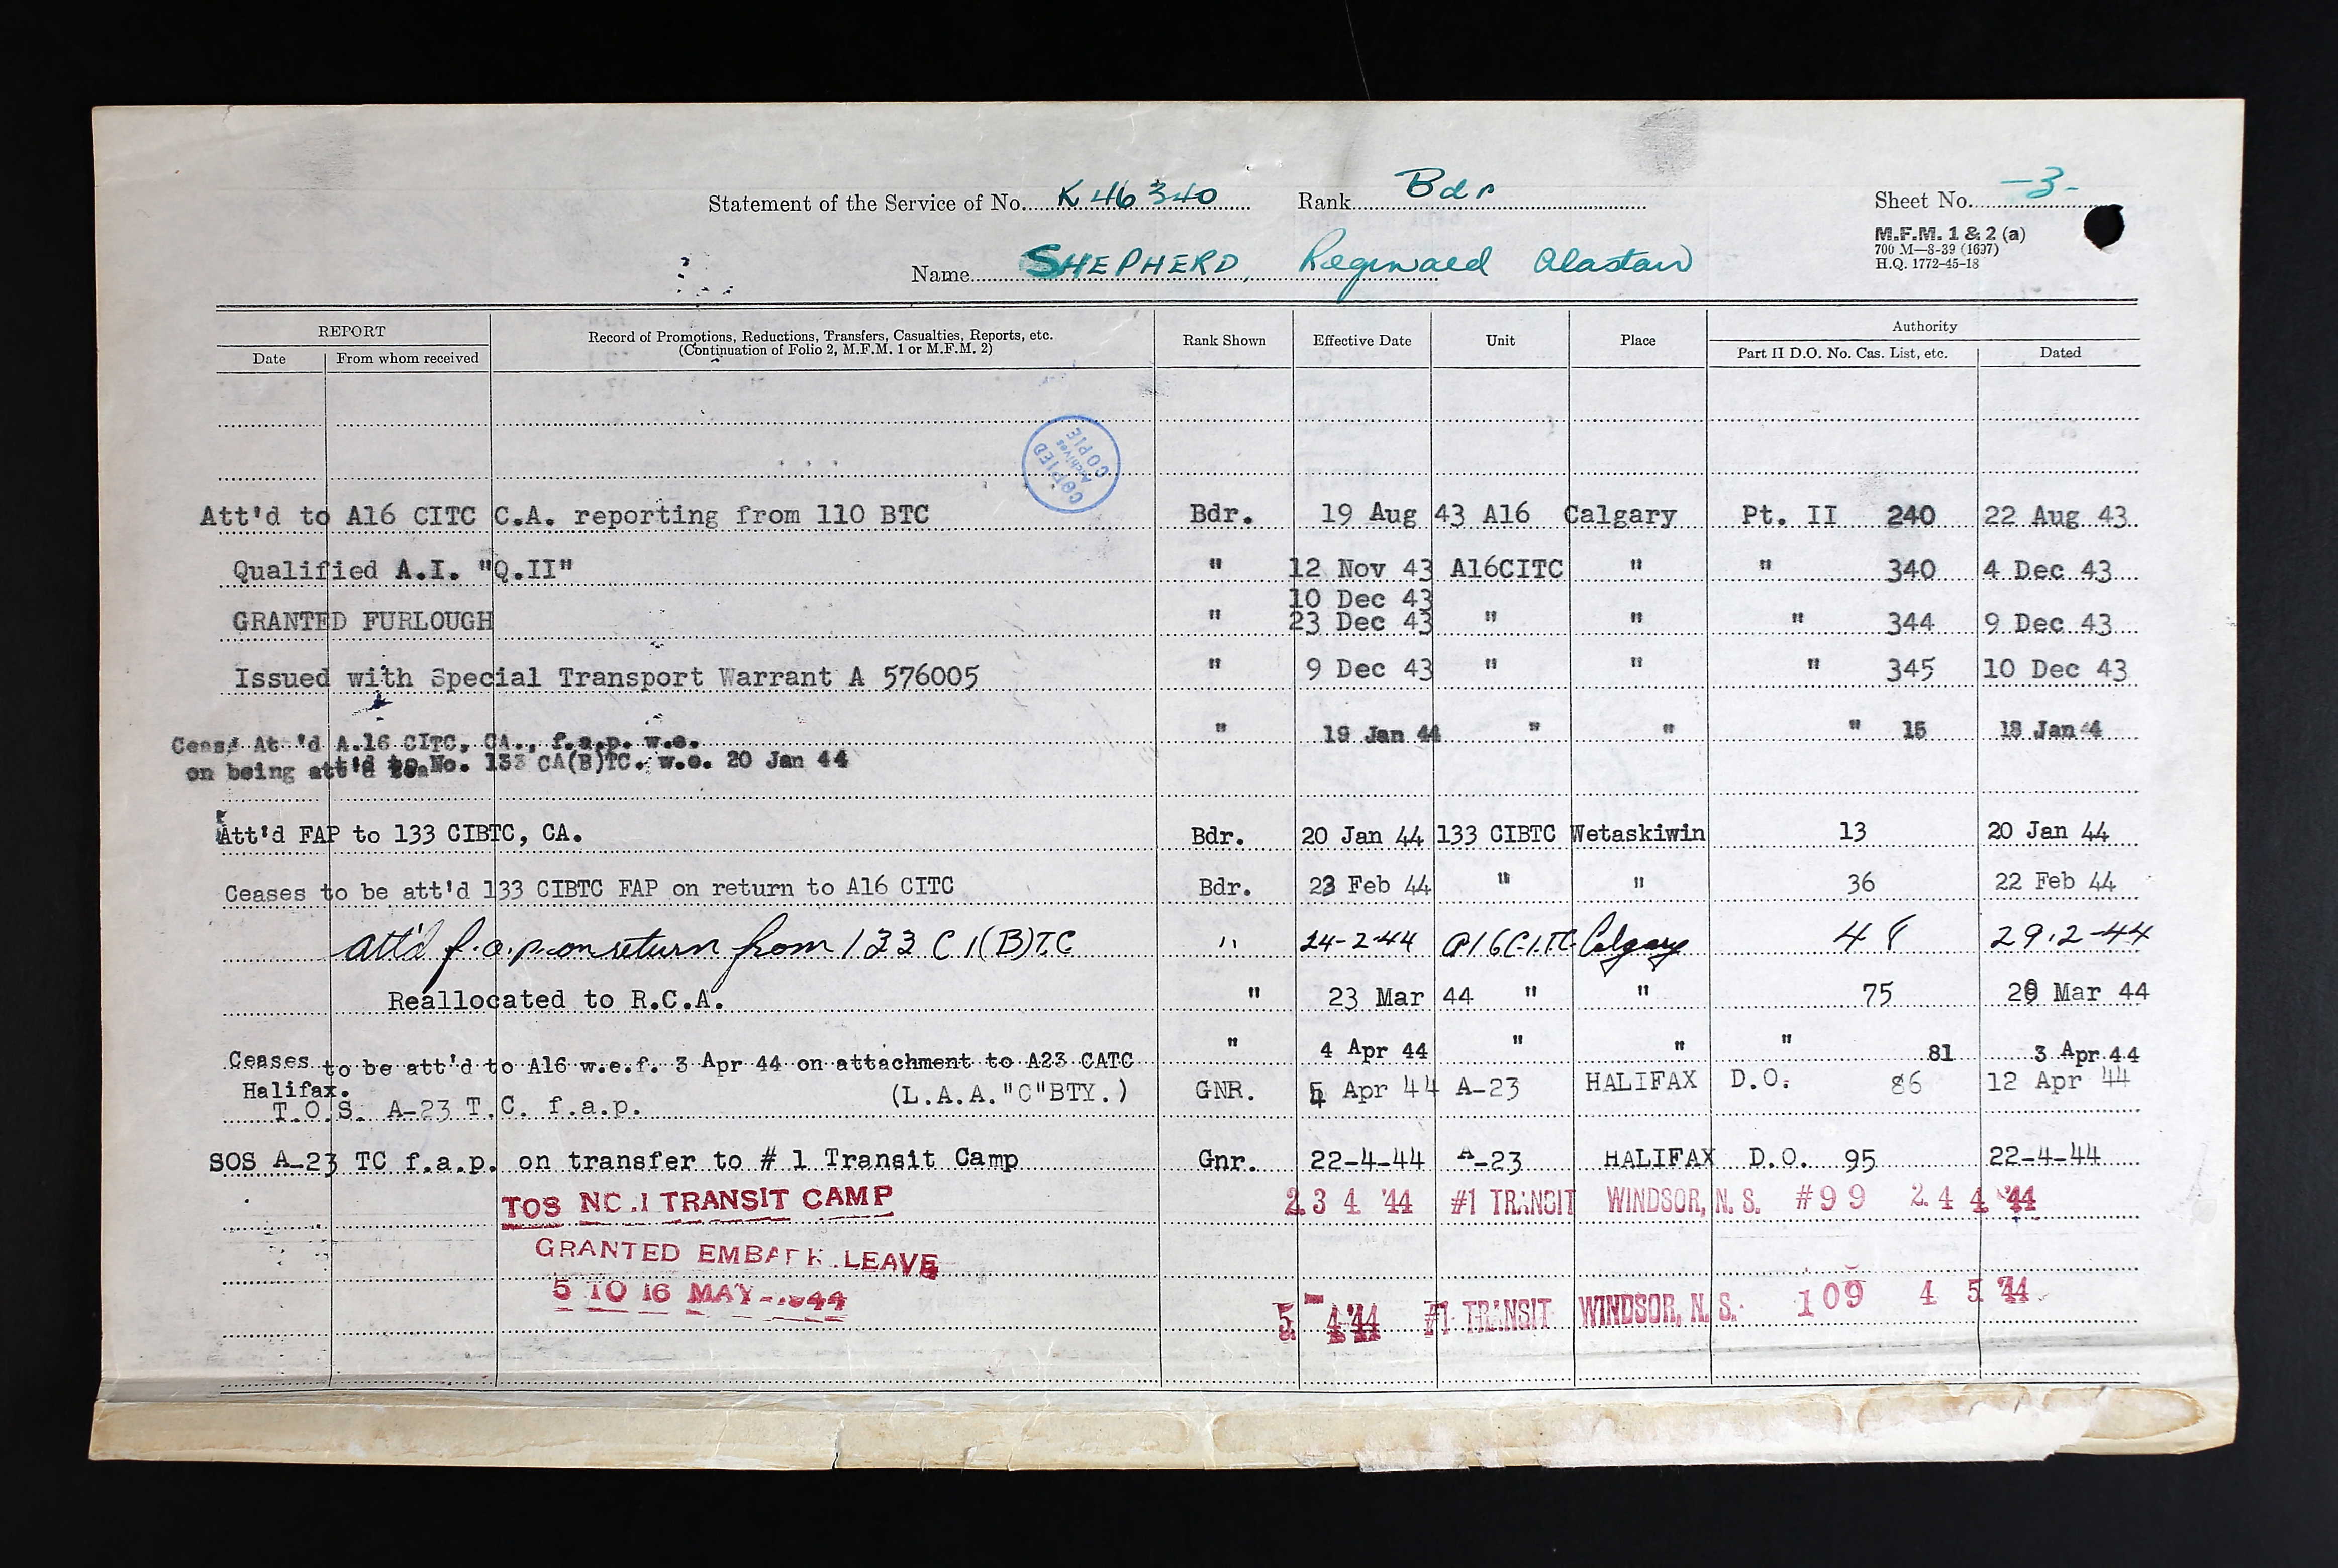 Statement of the Service of No. K 46340 Rank Bdr Sheet No. -3-
M.F.M. 1 & 2 (a)
700 M—8-39 (1697)
H.Q. 1772-45-18
Name SHEPHERD, Reginald Alastair
REPORT Record of Promotions, Reductions, Transfers, Casualties, Reports, etc. Rank Shown Effective Date Unit Place Authority
(Continuation of Folio 2, M.F.M. 1 or M.F.M. 2)
Date From whom received Part II D.O. No. Cas. List, etc. Dated
COPIED
Archives
COPIE
Att'd to A16 CITC C.A. reporting from 110 BTC Bdr. 19 Aug 43 A16 Calgary Pt. II 240 22 Aug 43
Qualified A.I. "Q.II" " 12 Nov 43 A16CITC " " 340 4 Dec 43
10 Dec 43
GRANTED FURLOUGH " 23 Dec 43 " " " 344 9 Dec 43
Issued with Special Transport Warrant A 576005 " 9 Dec 43 " " " 345 10 Dec 43
At 'd A.16 CITC, CA., f.a.p. w.e. " 19 Jan 44 " " " 15 Jan
on being att'd No. 133 CA(B)TC. w.e. 20 Jan 44
Att'd FAP to 133 CIBTC, CA. Bdr. 20 Jan 44 133 CIBTC Wetaskiwin 13 20 Jan 44
Ceases to be att'd 133 CIBTC FAP on return to A16 CITC Bdr. 23 Feb 44 " " 36 22 Feb 44
att'd f.a.p. on return from 133 C I(B)T.C " 24-2-44 A16 C.I.T.C. Calgary 48 29.2-44
Reallocated to R.C.A. " 23 Mar 44 " " 75 Mar 44
Ceases to be att'd to A16 w.e.f. 3 Apr 44 on attachment to A23 CATC " 4 Apr 44 " " " 81 3 Apr 44
Halifax.
T.O.S. A-23 T.C. f.a.p. (L.A.A."C"BTY.) GNR. Apr 44 A-23 HALIFAX D.O. 86 12 Apr 44
SOS A-23 TC f.a.p. on transfer to # 1 Transit Camp Gnr. 22-4-44 A-23 HALIFAX D.O. 95 22-4-44
TOS NO.1 TRANSIT CAMP 23 4 '44 #1 TRANSIT WINDSOR, N.S. #99 24 4 '44
GRANTED EMBARK.LEAVE
5 TO 16 MAY 1944 5 4 '44 #1 TRANSIT WINDSOR, N.S. 109 4 5 '44